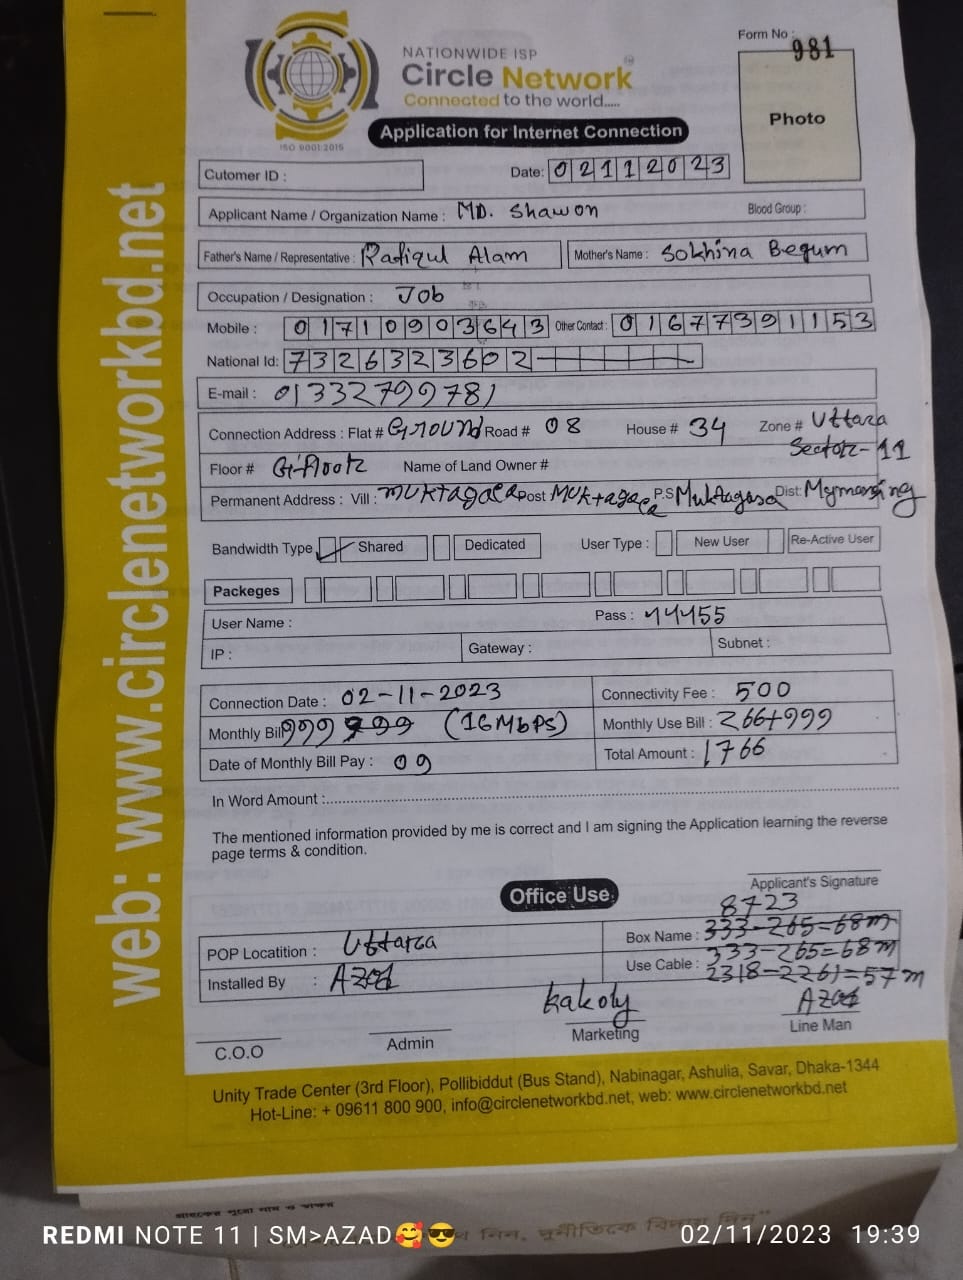 web: www.circlenetworkbd.net
Form No :
981
NATIONWIDE ISP
Circle Network
Connected to the world.....
ISO 9001:2015
Application for Internet Connection
Photo
Cutomer ID :
Date: 02112023
Applicant Name / Organization Name : MD. Shawon Blood Group :
Father's Name / Representative : Rafiqul Alam Mother's Name : Sokhina Begum
Occupation / Designation : Job
Mobile : 01710903643 Other Contact : 01677391153
National Id: 7326323602
E-mail : 01332799781
Connection Address : Flat # Ground Road # 08 House # 34 Zone # Uttara
Sector-11
Floor # G.floor Name of Land Owner #
Permanent Address : Vill : muktagaca Post Muktagaca P.S Muktagasa Dist: Mymensing
Bandwidth Type Shared Dedicated User Type : New User Re-Active User
Packeges
User Name : Pass : 44455
IP : Gateway : Subnet :
Connection Date : 02-11-2023 Connectivity Fee : 500
Monthly Bill 999 999 (16Mbps) Monthly Use Bill : 266+999
Date of Monthly Bill Pay : 09 Total Amount : 1766
In Word Amount :
The mentioned information provided by me is correct and I am signing the Application learning the reverse
page terms & condition.
Applicant's Signature
Office Use
8723
POP Locatition : Uttara Box Name : 333-265=68m
Use Cable : 333-265=68m
Installed By : Azad 2318-2261=57m
kakoly Azad
C.O.O Admin Marketing Line Man
Unity Trade Center (3rd Floor), Pollibiddut (Bus Stand), Nabinagar, Ashulia, Savar, Dhaka-1344
Hot-Line: + 09611 800 900, info@circlenetworkbd.net, web: www.circlenetworkbd.net
নিন, দুর্নীতিকে বিদায় দিন"
REDMI NOTE 11 | SM>AZAD🥰😎 02/11/2023 19:39